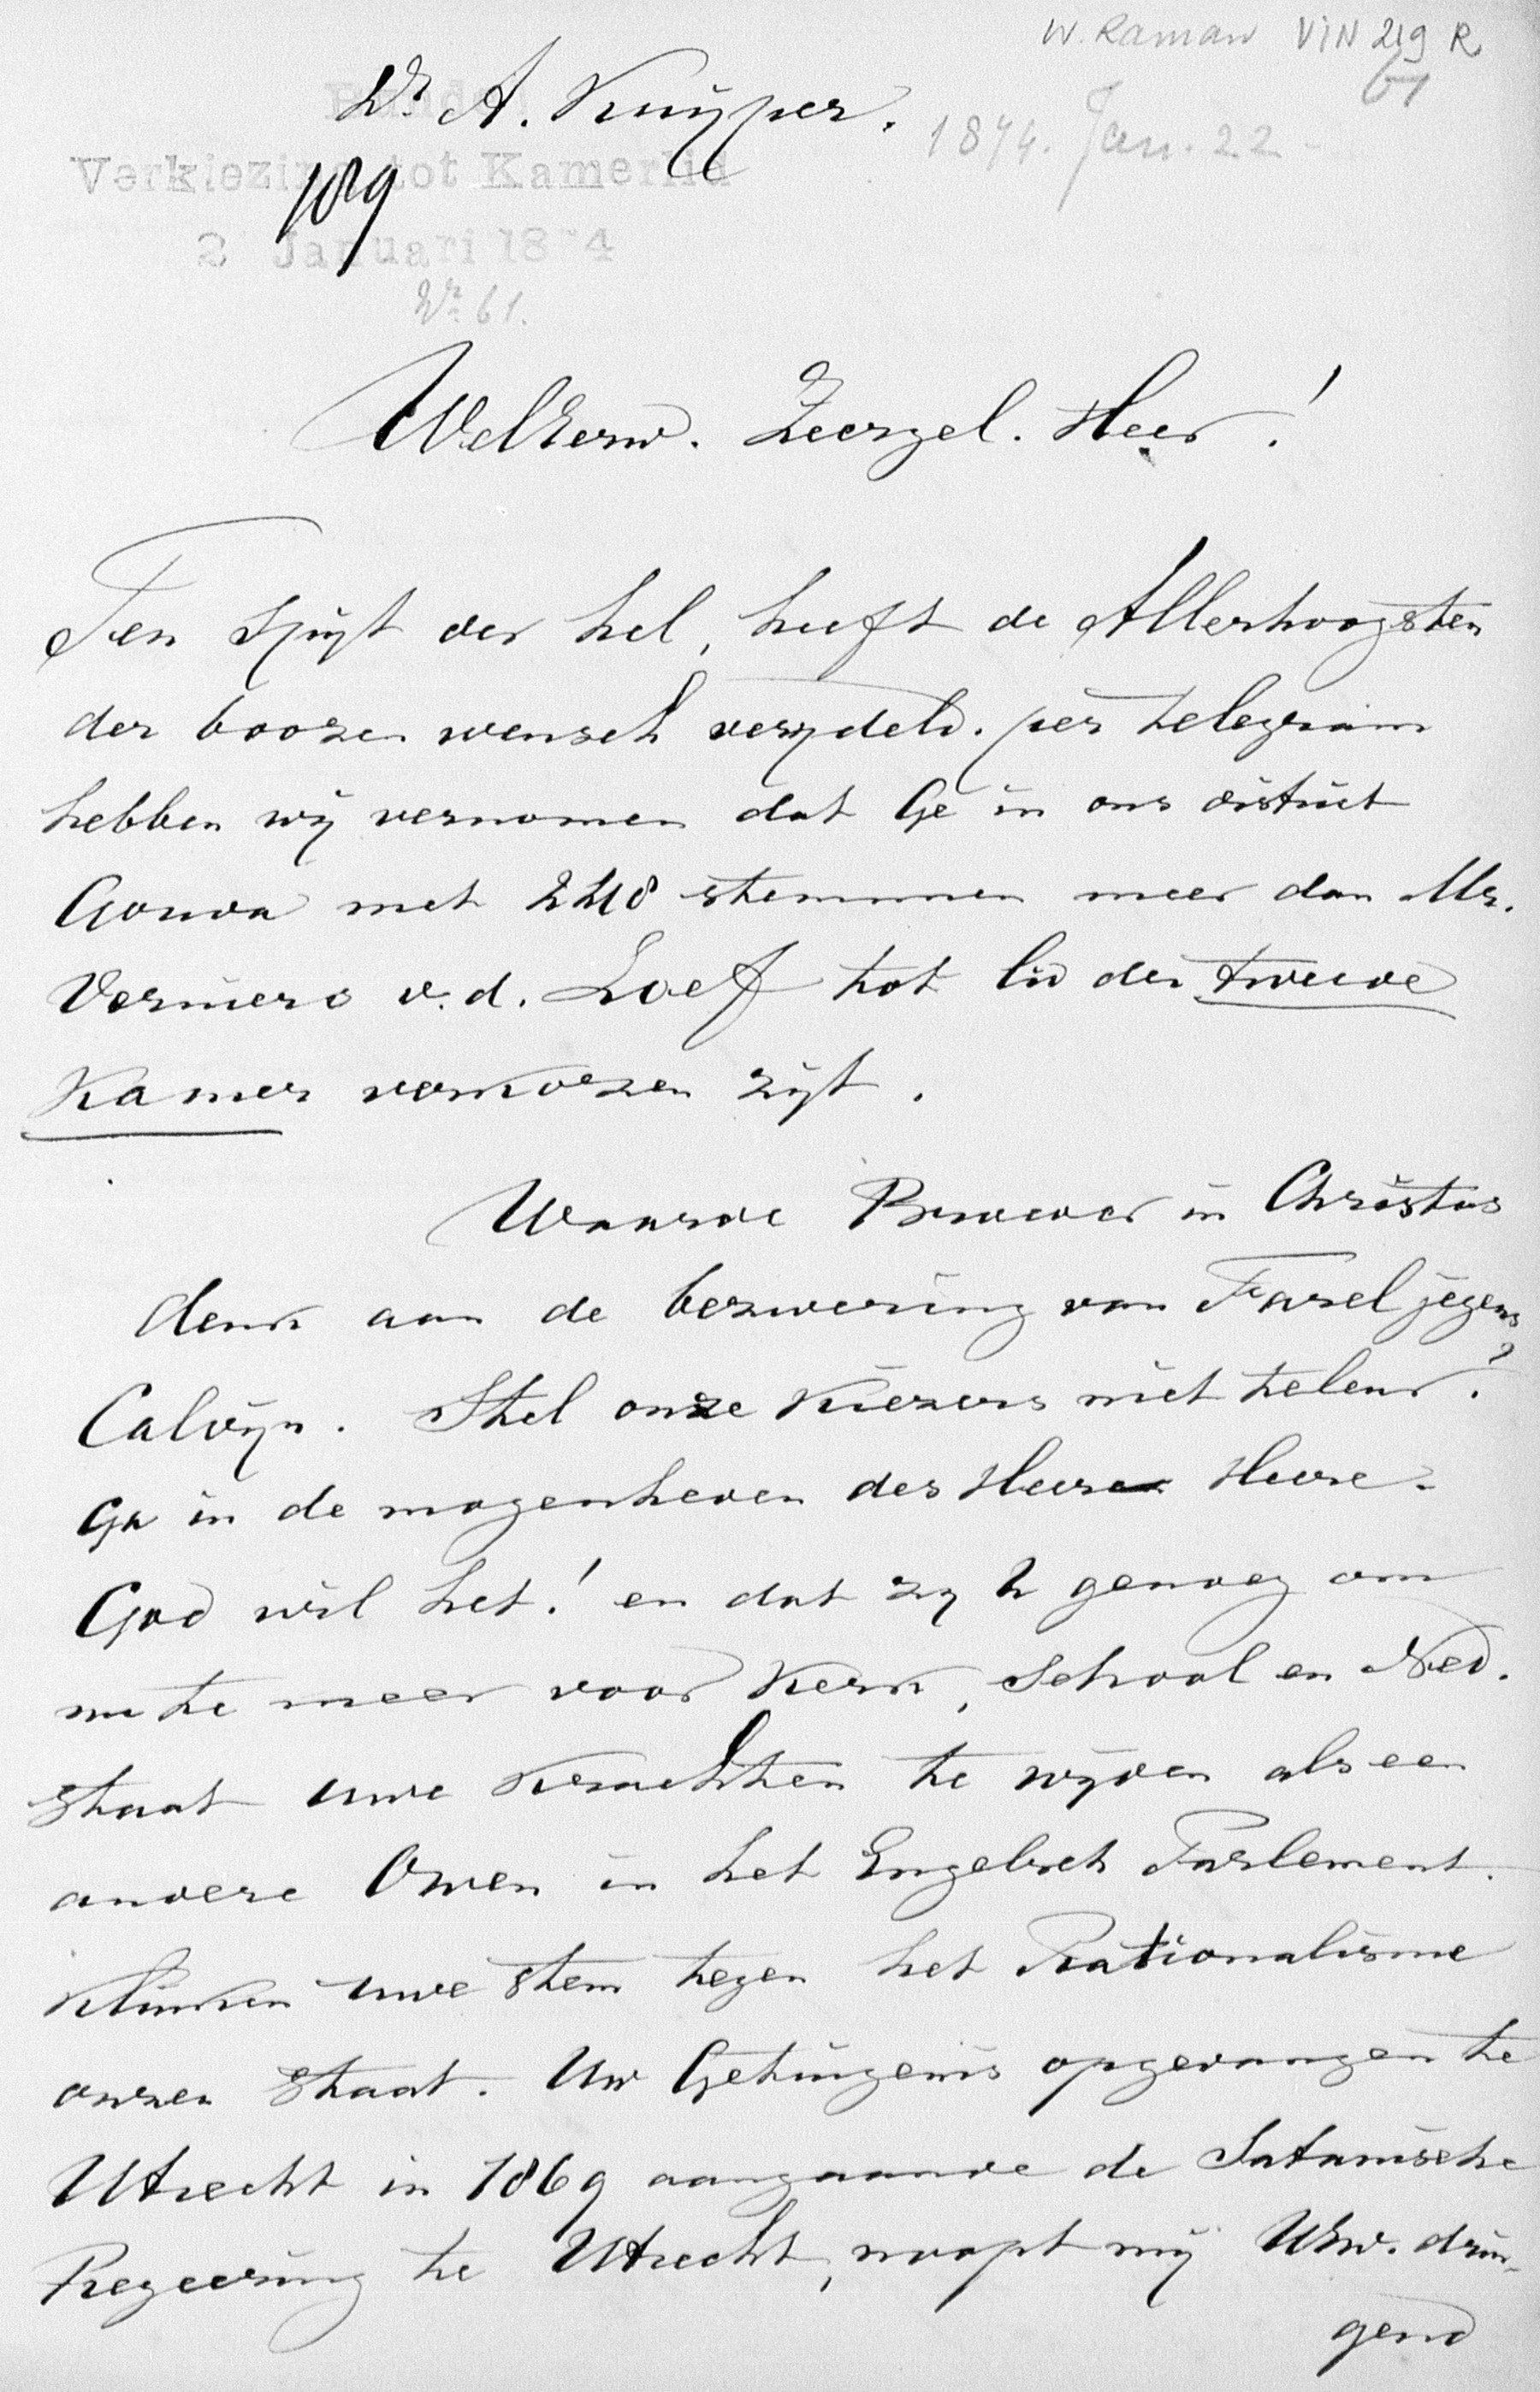 W. Raman VIN 219 R
61
Dr. A. Kuijper.
1874. Jan. 22
Verkiezing tot Kamerlid
109
2 Januari 1874
Nr. 61.
WelEerw. Zeergel. Heer!
Ten spijt der hel, heeft de Allerhoogsten
der boozen wensch verijdeld. per telegram
hebben wij vernomen dat Ge in ons district
Gouda met 248 stemmen meer dan Mr.
Verniers v.d. Loeff tot lid der tweede
Kamer verkozen zijt.
Waarde Broeder in Christus
denk aan de bezwering van Farel jegens
Calvijn. Stel onze Kiezers niet teleur?
Ga in de mogenheden des Heere Heere.
God wil het! en dat zij U genoeg om
nu te meer voor Kerk, School en Ned.
Staat uwe Krachten te wijden als een
andere Owen in het Engelsch Parlement.
Klinken uwe stem tegen het Rationalisme
onzen Staat. Uw Getuigenis opgevangen te
Utrecht in 1869 aangaande de Satanische
Regeering te Utrecht, noopt mij UEw. drin-
gend